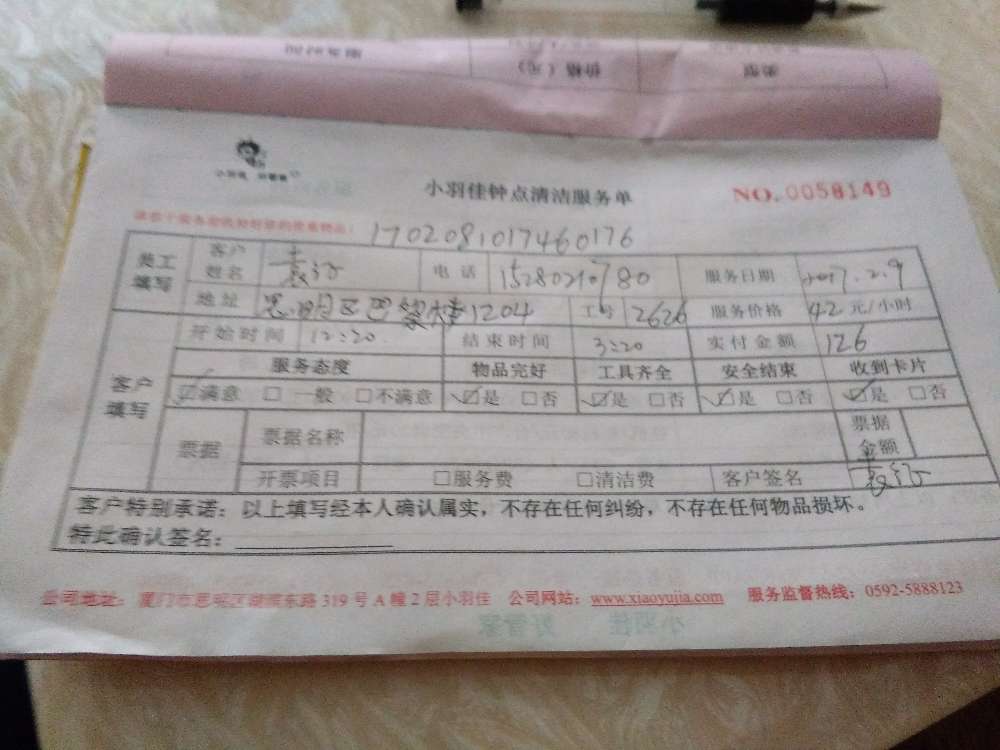 价格（元）
类型
小羽佳 好管家
小羽佳钟点清洁服务单
NO.0058149
1702081017460176
员工填写 客户姓名 袁 电话 15280210780 服务日期 2017.2.9
地址 思明区巴黎 1204 工号 2626 服务价格 42元/小时
客户填写 开始时间 12:20 结束时间 3:20 实付金额 126
服务态度 物品完好 工具齐全 安全结束 收到卡片
☑满意 □ 一般 □不满意 ☑是 □否 ☑是 □否 ☑是 □否 ☑是 □否
票据 票据名称 票据金额
开票项目 □服务费 □清洁费 客户签名 袁
客户特别承诺：以上填写经本人确认属实，不存在任何纠纷，不存在任何物品损坏。
特此确认签名：
公司地址：厦门市思明区湖滨东路 319 号 A 幢 2 层小羽佳 公司网站：www.xiaoyujia.com 服务监督热线：0592-5888123